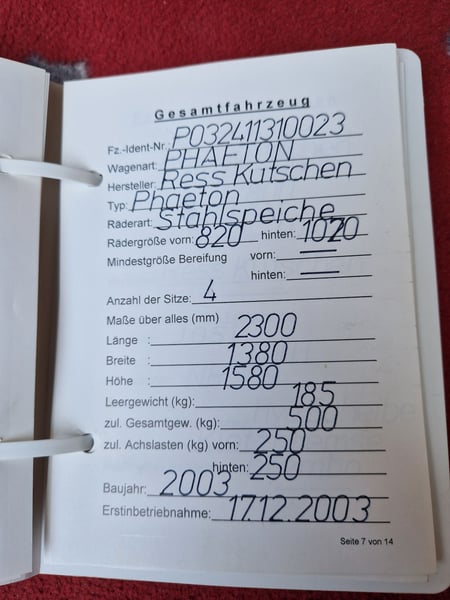 Gesamtfahrzeug
Fz.-Ident-Nr.: P032411310023
Wagenart: PHAETON
Hersteller: Ress Kutschen
Typ: Phaeton
Räderart: Stahlspeiche
Rädergröße vorn: 820 hinten: 1020
Mindestgröße Bereifung vorn: —
hinten: —
Anzahl der Sitze: 4
Maße über alles (mm)
Länge : 2300
Breite : 1380
Höhe : 1580
Leergewicht (kg): 185
zul. Gesamtgew. (kg): 500
zul. Achslasten (kg) vorn: 250
hinten: 250
Baujahr: 2003
Erstinbetriebnahme: 17.12.2003
Seite 7 von 14